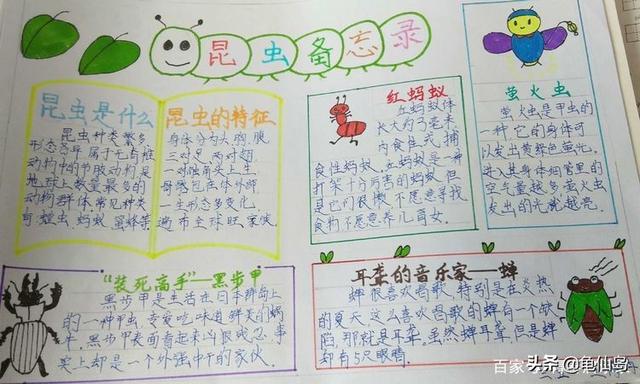 昆虫备忘录
昆虫是什么
昆虫种类繁多
形态各异属于无脊椎
动物中的节肢动物是
地球上数量最多的
动物群体常见种类
有蝗虫、蚂蚁、蜜蜂等
昆虫的特征
身体分为头、胸、腹
三对足,两对翅
一对触角头上生
骨骼包在体外部
一生形态多变化
遍布全球旺家族
红蚂蚁
红蚂蚁体
长大约3毫米
肉食性或捕
食性蚂蚁。红蚂蚁是一种
打架十分厉害的蚂蚁,但
是它们很懒,不愿意寻找
食物不愿意养儿育女。
萤火虫
萤火虫是甲虫的
一种,它的身体可
以发出黄绿色萤光。
进入其身体细管里的
空气量越多,萤火虫
发出的光就越亮。
“装死高手”——黑步甲
黑步甲是生活在日本那向上
的一种甲虫,专爱吃味道鲜美的蜗
牛。黑步甲表面看起来凶狠残忍,事
实上却是一个外强中干的家伙。
耳聋的音乐家——蝉
蝉很喜欢唱歌,特别是在炎热
的夏天,这么喜欢唱歌的蝉有一个缺
陷,那就是耳聋。虽然蝉耳聋,但是蝉
却有5只眼睛。
百家
头条@龟仙岛